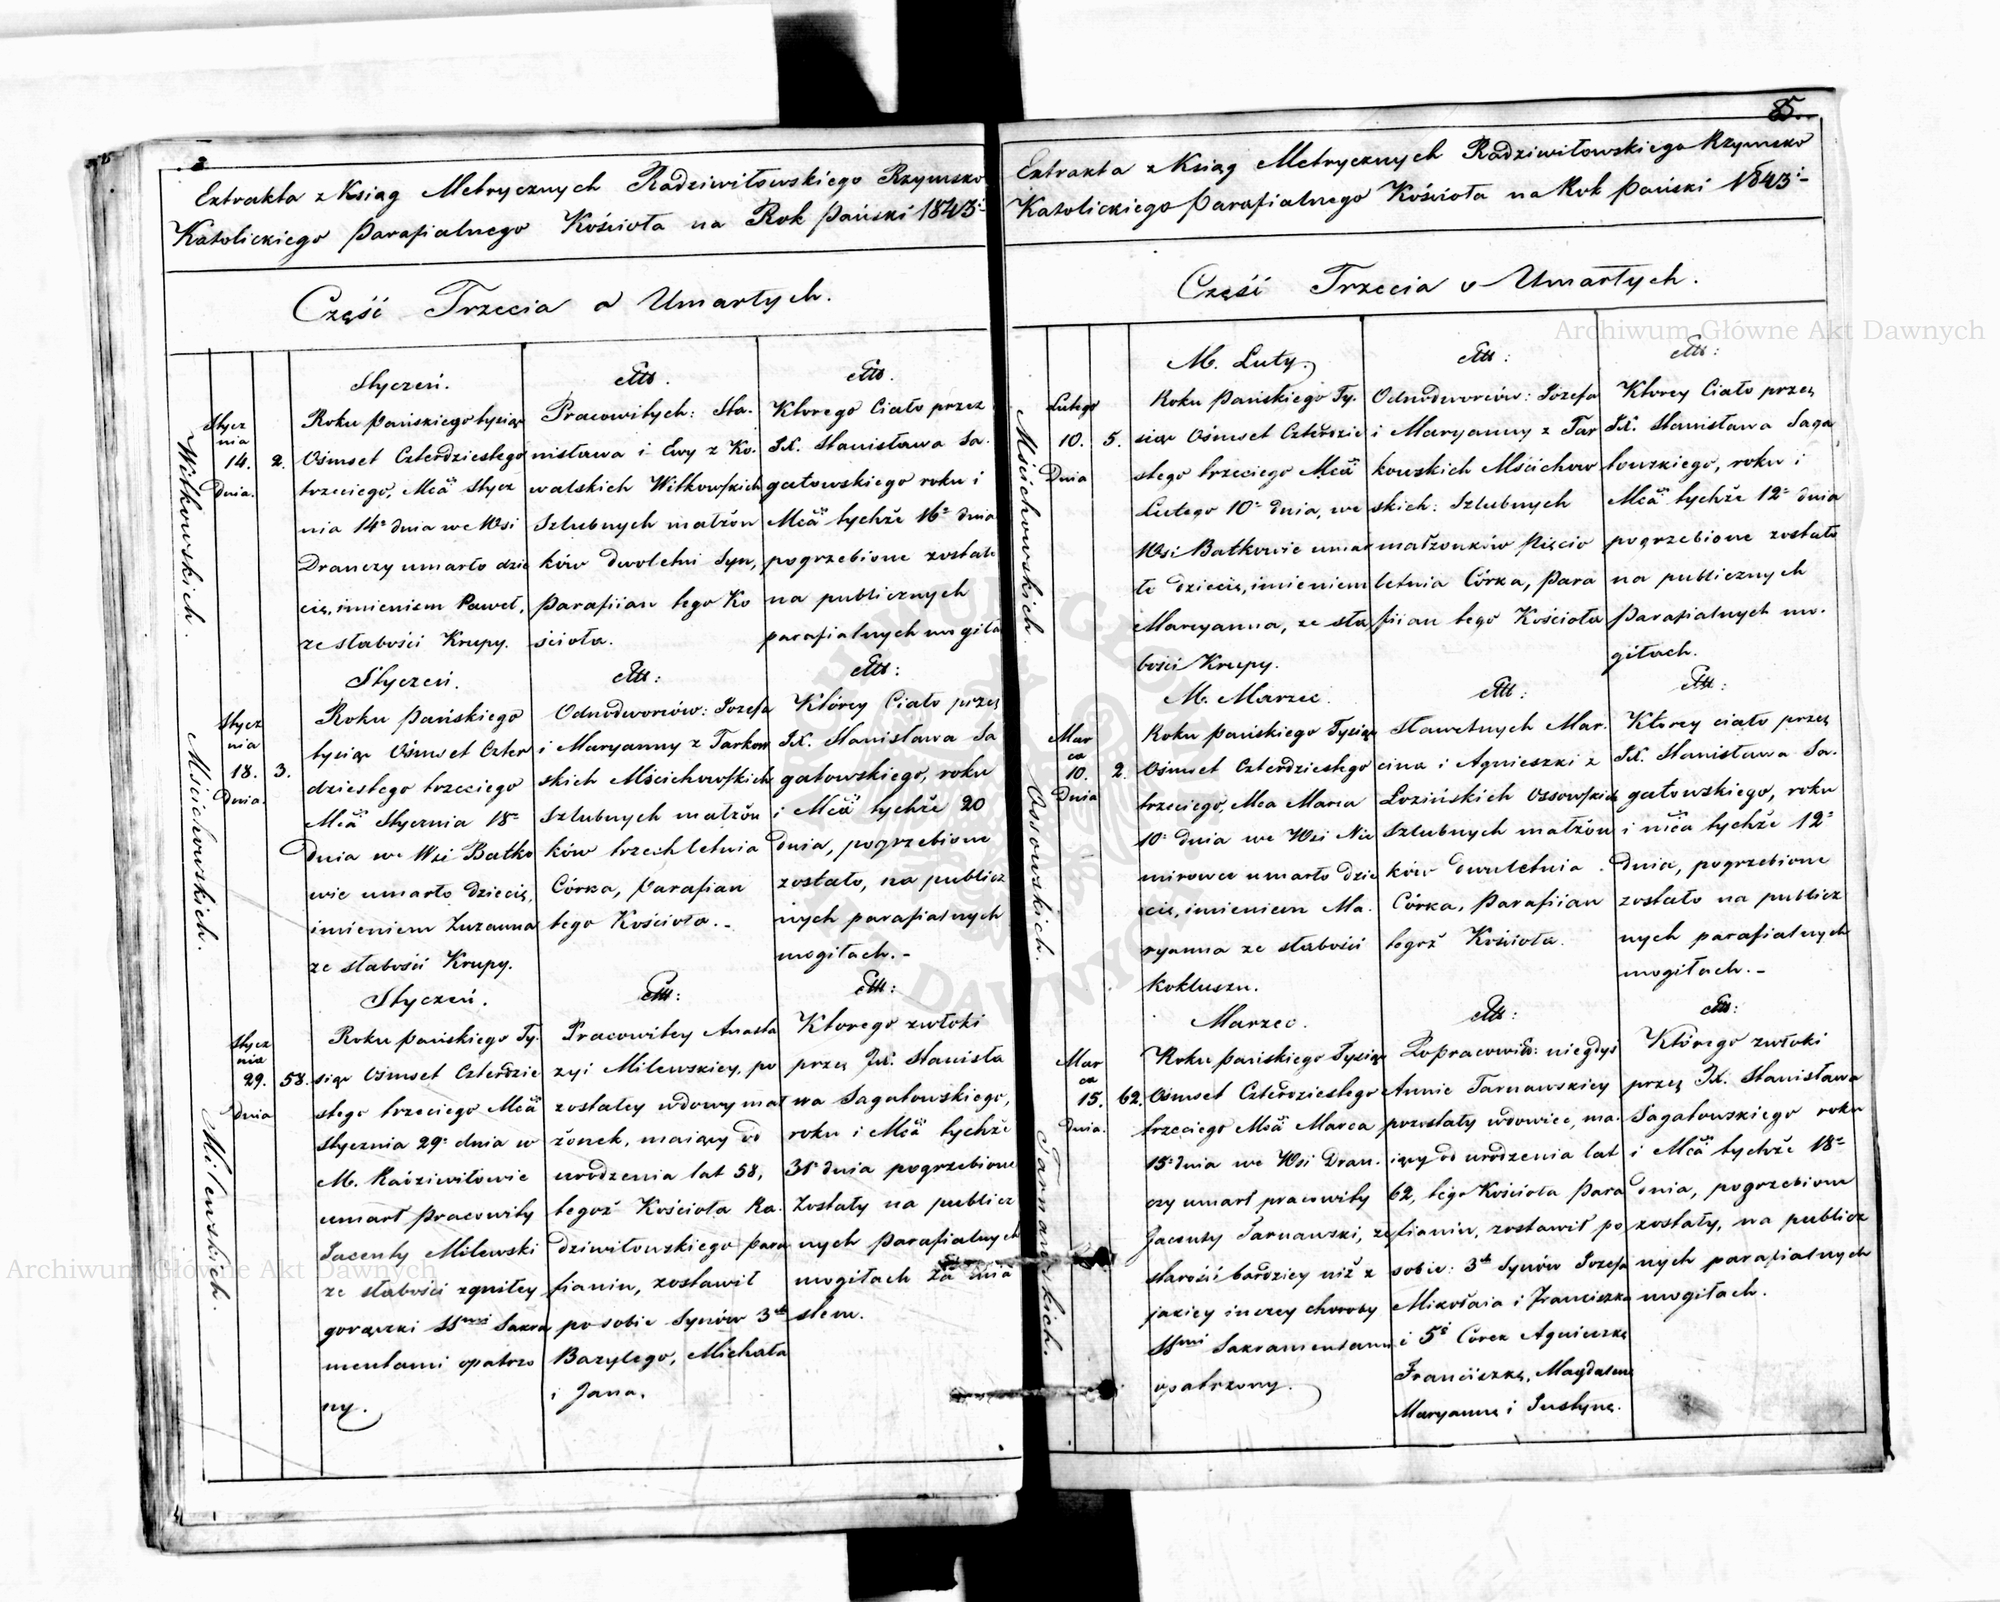 2
Extrakta z Ksiąg Metrycznych Radziwiłowskiego Rzymsko
Katolickiego Parafialnego Kościoła na Rok Pański 1843:
Część Trzecia o Umarłych.
Witkowskich.
Stycz
nia
14.
Dnia.
2.
Styczeń.
Roku Pańskiego tysiąc
Ośmset Czterdziestego
trzeciego, Mca Stycz
nia 14º dnia we Wsi
Dranczy umarło dzie
cię, imieniem Paweł,
ze słabości Krupy.
Pracowitych: Sta.
nisława i Ewy z Ko.
walskich Witkowskich
Szlubnych małżon
ków dwoletni Syn,
Parafiian tego Ko
ścioła.
Ktorego Ciało przez
JX. Stanisława Sa.
gatowskiego roku i
Mca tychże 16º dnia
pogrzebione zostało
na publicznych
parafialnych mogiła
Mścichowskich.
Stycz
nia
18.
Dnia.
3.
Styczeń.
Roku Pańskiego
tysiąc Ośmset Czter
dziestego trzeciego
Mca Stycznia 18º
Dnia we Wsi Batko
wie umarło dziecię,
imieniem Zuzanna
ze słabości Krupy.
Odnodworców: Jozefa
i Maryanny z Tarkow
skich Mścichowskich
Szlubnych małżon
ków trzechletnia
Córka, Parafian
tego Kościoła.
Którey Ciało przez
JX. Stanisława Sa
gatowskiego, roku
i Mca tychże 20
Dnia, pogrzebione
zostało, na publicz
nych parafialnych
mogiłach.
Milewskich.
Stycz
nia
29.
Dnia
58.
Styczeń.
Roku Pańskiego Ty.
siąc Ośmset Czterdzie
stego trzeciego Mca
Stycznia 29º dnia w
M. Radziwiłowie
umarł Pracowity
Jacenty Milewski
ze słabości zgniłey
gorączki SSmi Sakra
mentami opatrzo
ny.
Pracowitey Anasta
zyi Milewskiey, po
zostałey wdowy mał
żonek, maiący od
urodzenia lat 58,
tegoż Kościoła Ra.
dziwiłowskiego para
fianin, zostawił
po sobie Synów 3ch
Bazylego, Michała
i Jana.
Ktorego zwłoki
przez JX. Stanisła
wa Sagatowskiego,
roku i Mca tychże
31º dnia pogrzebione
Zostały na publicz
nych Parafialnych
mogiłach
85.
Extrakta z Ksiąg Metrycznych Radziwiłowskiego Rzymsko
Katolickiego Parafialnego Kościoła na Rok Pański 1843:
Część Trzecia o Umarłych.
Mścichowskich.
Lutego
10.
Dnia
5.
M. Luty.
Roku Pańskiego Ty.
siąc Ośmset Czterdzie
stego trzeciego Mca
Lutego 10º dnia, we
Wsi Batkowie umar
ło dziecię, imieniem
Maryanna, ze sła
bości Krupy.
Odnodworców: Jozefa
i Maryanny z Tar
kowskich Mścichow
skich: Szlubnych
małżonków Pięcio
letnia Córka, Para
fiian tego Kościoła
Ktorey Ciało przez
JX. Stanisława Saga
towskiego, roku i
Mca tychże 12º dnia
pogrzebione zostało
na publicznych
Parafialnych mo.
giłach.
Ossowskich.
Mar
ca
10.
Dnia
2.
M. Marzec.
Roku Pańskiego Tysiąc
Ośmset Czterdziestego
trzeciego, Mca Marca
10º dnia we Wsi Nie
mirowce umarło dzie
cię, imieniem Ma.
ryanna ze słabości
Kokluszu.
Sławetnych Mar.
cina i Agnieszki z
Łozińskich Ossowskich
Szlubnych małżon
ków dwuletnia
Córka, Parafiian
tegoż Kościoła.
Ktorey ciało przez
JX. Stanisława Sa.
gatowskiego, roku
i mca tychże 12º
Dnia, pogrzebione
zostało na publicz
nych parafialnych
mogiłach.
Tarnawskich.
Mar
ca
15.
Dnia.
62.
Marzec.
Roku Pańskiego Tysiąc
Ośmset Czterdziestego
trzeciego Mca Marca
15º dnia we Wsi Dran.
czy umarł pracowity
Jacenty Tarnawski, ze
starości bardziey niż z
jakiey inszey choroby
SSmi Sakramentami
opatrzony.
Po pracowitey: niegdyś
Annie Tarnawskiey
pozostały wdowiec, ma.
iący od urodzenia lat
62, tego Kościoła Para
fianin, zostawił po
sobie: 3ch Synów Jozefa
Mikołaia i Franciszka
i 5ć Córek Agnieszkę
Franciszkę, Magdalenę
Maryannę i Justynę.
Którego zwłoki
przez JX. Stanisława
Sagatowskiego roku
i Mca tychże 18º
Dnia, pogrzebione
zostały, na publicz
nych parafialnych
mogiłach.
Archiwum Główne Akt Dawnych
Archiwum Główne Akt Dawnych